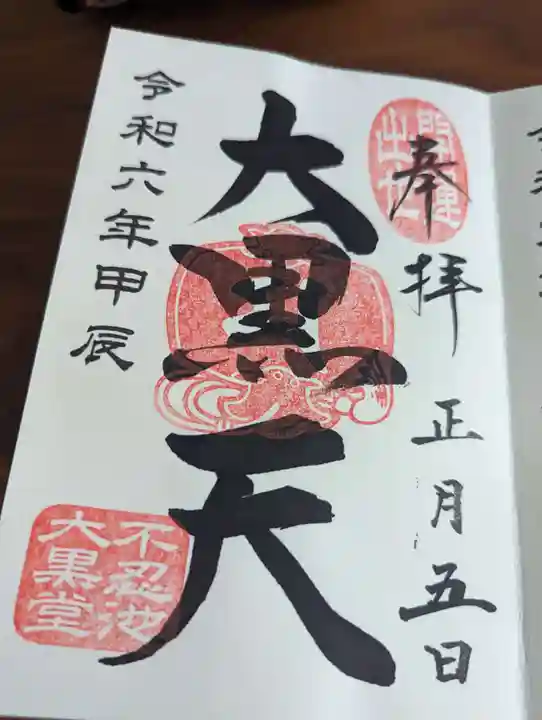 奉拝
正月五日
開運
出世
大黒天
令和六年甲辰
不忍池
大黒堂